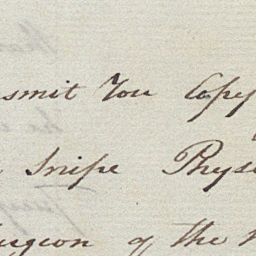 smit You Copy
Snipe Physi
urgeon of the